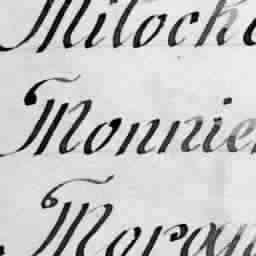 Milock
Monnier
Morga